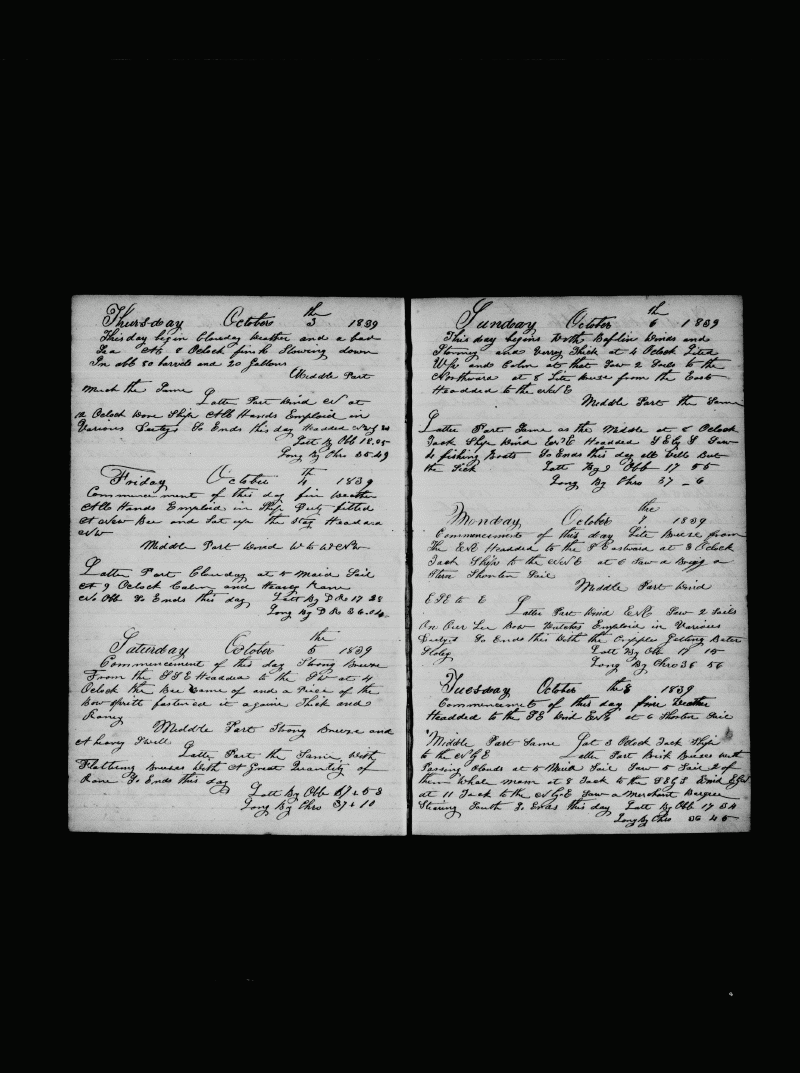 Thursday October 3 th 1839
This day begin Clouday Weather and a bad
Sea At 8 Oclock finish Stowing down
In all 80 barrels and 20 Gallons
Middle Part
much the Same
Latter Part Wind at
Oclock Wore Ship All Hands Emploid in
Various Dutys So Ends this day Headded
Latt By Obb 18.05
Long By Chro 35.49
Friday October 4 th 1839
Commencement of this day fin Weather
All Hands Emploid in Ship Duty fitted
A New Bee and Sat upe the Stay Headded
NW
Middle Part Wind W to WNW
Latter Part Clouday at 5 Maid Sail
At 9 Oclock Calm and Heavey Rane
No Obb So Ends this day Latt By D R 17 28
Long By D R 36.04
Saturday October 5 the 1839
Commencement of this day Strong Breeze
From the SSE Headded to the SW at 4
Oclock the Bee Came of and a Piece of the
Bowspritt fastened it againe Thick and
Raney
Middle Part Strong Breeze and
A heavy Swell
Latter Part the Same With
Flattring Breezes With A Great Quantity of
Rane So Ends this day
Latt By Obb 17 + 53
Long By Chro 37 + 10
Sunday October 6 th 1839
This day begins With Baflin Winds and
Stormey and Verry Thick at 4 Oclock Lited
Upp and Calm at that Saw 2 Sails to the
Northward at 8 Lite breeze from the East
Headded to the NNE
Middle Part the Same
Latter Part Same as the Middle at 6 Oclock
Tack Ship Wind Headded S E by S Saw
fishing Boats So Ends this day all Well But
the Sick Latt By Obb 17 55
Long By Chro 37 - 6
Monday October 7 the 1839
Commencement of this day Lite Breeze from
The ENE Headded to the S Eastward at 3 Oclock
Tack Ship to the NNE at 6 Saw a Brigg a
Stern Shorten Sail
Middle Part Wind
ESE to E
Latter Part Wind ENE Saw 2 Sails
On Our Lee Bow Watches Emploid in Various
Dutys So Ends this With the Cripples Getting Better
Sloley Latt By Obb 17 15
Long By Chro 36 56
Tuesday October the 8 1839
Commencement of this day fine Weather
Headded to the SE Wind ENE at 6 Shorten Sail
Middle Part Same at 3 Oclock Tack Ship
to the N by E Latter Part Brisk Breezes With
Passing Clouds at 5 Maid Sail Saw 5 Sail 4 of
them Whale mem at 8 Tack to the S E by S Wind
at 11 Tack to the N by E Saw a Merchant
Stearing South So Ends this day Latt By Obb 17 34
Long By Chro 36 45